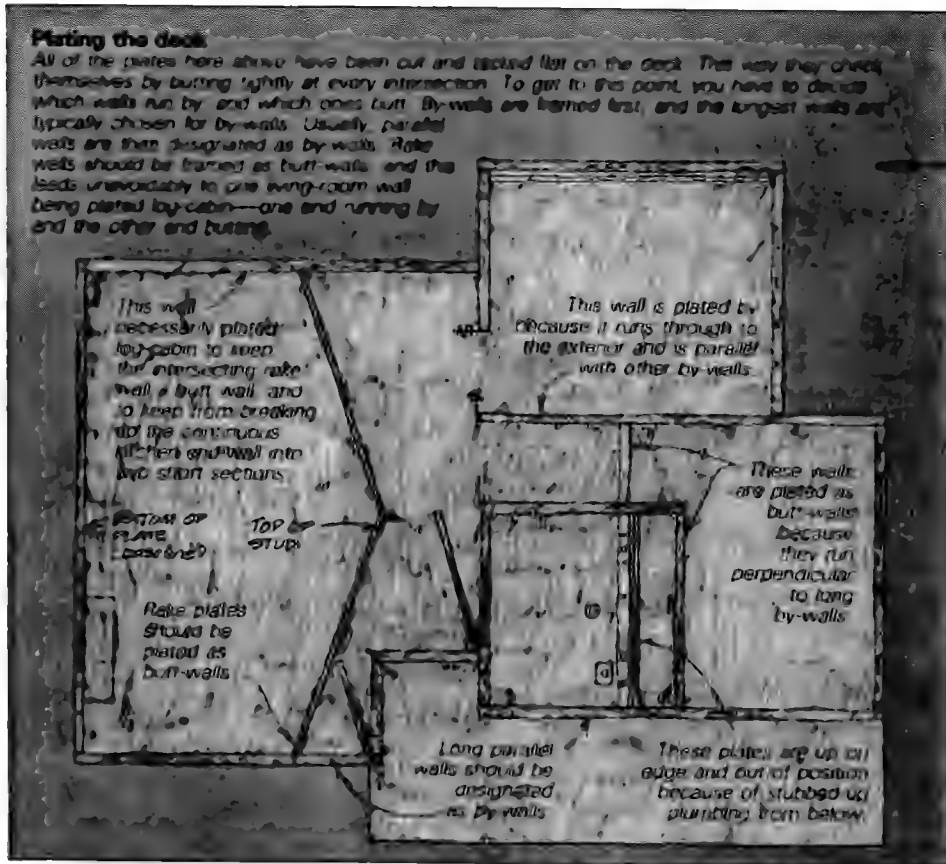 Plating the deck
All of the plates here above have been cut and tacked flat on the deck. This way they check
themselves by butting tightly at every intersection. To get to this point, you have to decide
which walls run by and which ones butt. By-walls are framed first, and the longest walls are
typically chosen for by-walls. Usually, parallel
walls are then designated as by-walls. Rake
walls should be framed as butt-walls, and this
leads unavoidably to one living-room wall
being plated log-cabin—one end running by
and the other end butting.
This wall
necessarily plated
log-cabin to keep
the intersecting rake
wall a butt wall, and
to keep from breaking
up the continuous
kitchen end-wall into
two short sections
This wall is plated by
because it runs through to
the exterior and is parallel
with other by-walls.
These walls
are plated as
butt-walls
because
they run
perpendicular
to long
by-walls
BOTTOM OF
PLATE
TOP
STUDS
Rake plates
should be
plated as
butt-walls
Long parallel
walls should be
designated
as by-walls
These plates are up on
edge and out of position
because of stubbed up
plumbing from below.